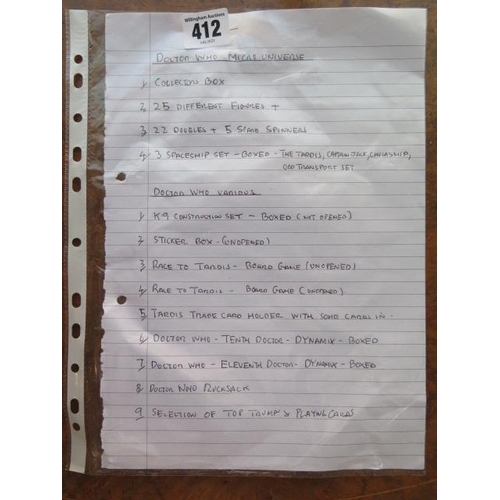 Willingham Auctions
412
DOCTOR WHO MICRO UNIVERSE
1 COLLECTORS BOX
2 25 DIFFERENT FIGURES +
3 22 DOUBLES + 5 STAND SPINNERS
4 3 SPACESHIP SET - BOXED - THE TARDIS, CAPTAIN JACK, CHULA SHIP,
OOD TRANSPORT SET
DOCTOR WHO VARIOUS
1 K9 CONSTRUCTION SET - BOXED (NOT OPENED)
2 STICKER BOX - (UNOPENED)
3 RACE TO TARDIS - BOARD GAME (UNOPENED)
4 RACE TO TARDIS - BOARD GAME (UNOPENED)
5 TARDIS TRADE CARD HOLDER WITH SOME CARDS IN -
6 DOCTOR WHO - TENTH DOCTOR - DYNAMIX - BOXED
7 DOCTOR WHO - ELEVENTH DOCTOR - DYNAMIX - BOXED
8 DOCTOR WHO RUCKSACK
9 SELECTION OF TOP TRUMPS & PLAYING CARDS